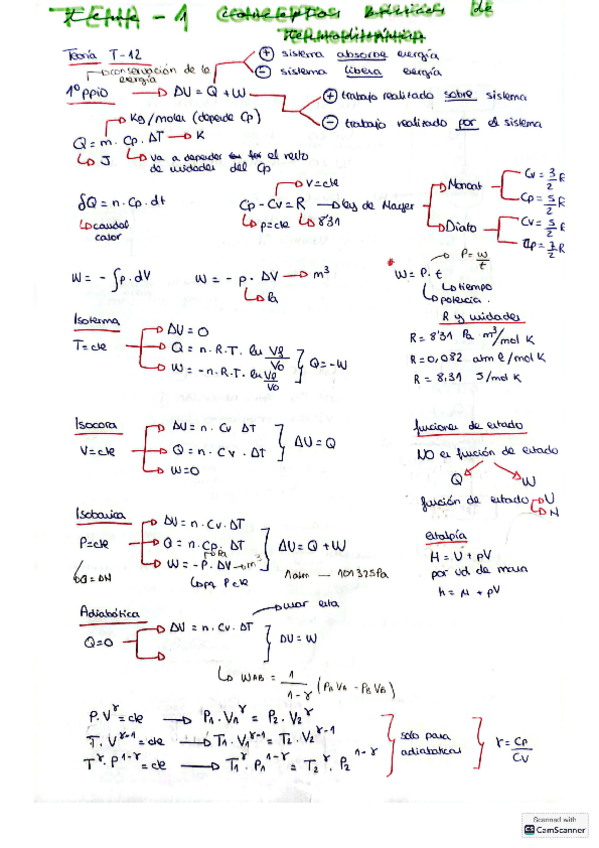 TEMA - 1 CONCEPTOS BÁSICOS DE TERMODINÁMICA
Teoría T-12
conservación de la energía
⊕ sistema absorve energía
⊖ sistema libera energía
1º ppio → ΔU = Q + W
⊕ trabajo realizado sobre sistema
⊖ trabajo realizado por el sistema
Kg/moles (depende Cp)
Q = m · Cp · ΔT → K
J
va a depender por el resto de unidades del Cp
V=cte
δQ = n · Cp · dt
Cp - Cv = R → ley de Mayer
caudal calor
p=cte
8'31
Monoat
Cv = 3/2 R
Cp = 5/2 R
Diato
Cv = 5/2 R
Cp = 7/2 R
W = - ∫p · dV
W = - p · ΔV → m³
Pa
P = W/t
* W = P · t
tiempo
potencia
Isoterma
T=cte
ΔU = 0
Q = n · R · T · ln Vf/Vo
W = -n · R · T · ln Vf/Vo
Q = -W
R y unidades
R = 8'31 Pa m³/mol K
R = 0,082 atm l/mol K
R = 8,31 J/mol K
Isocora
V=cte
ΔU = n · Cv ΔT
Q = n · Cv · ΔT
W=0
ΔU = Q
funciones de estado
NO es función de estado
Q W
función de estado
U
H
Isobarica
P=cte
ΔU = n · Cv · ΔT
Q = n · Cp · ΔT
Pa
W = -P · ΔV → m³
ΔU = Q + W
1atm — 101325Pa
entalpía
H = U + pV
por ud de masa
h = μ + pV
Adiabática
Q=0
ΔU = n · Cv · ΔT
usar esta
ΔU = W
WAB = 1/1-γ (PA VA - PB VB)
P · V^γ = cte → P₁ · V₁^γ = P₂ · V₂^γ
T · V^γ-1 = cte → T₁ · V₁^γ-1 = T₂ · V₂^γ-1
T^γ · P^1-γ = cte → T₁^γ · P₁^1-γ = T₂^γ · P₂^1-γ
solo para adiabaticas
γ = Cp/Cv
Scanned with
CS CamScanner